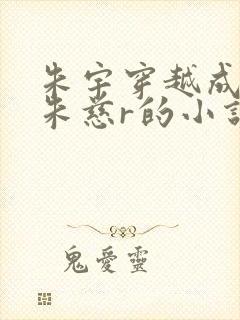 朱宇穿越成
朱慈r的小説
鬼愛靈